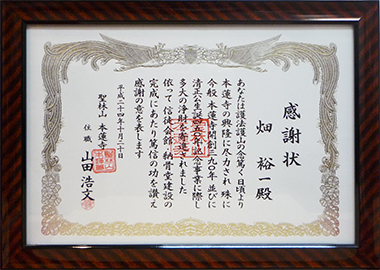 感謝状
畑 裕一殿
あなたは護法護山の念篤く日頃より
本蓮寺の興隆に尽力され 殊に
今般 本蓮寺開創三九〇年 並びに
清正公生誕四五〇年記念事業に際し
多大の浄財を寄進されました
依って 信徒会館 納骨堂建設の
完成にあたり篤信の功を讃え
感謝の意を表します
平成二十四年十月二十日
聖林山 本蓮寺
住職 山田浩文